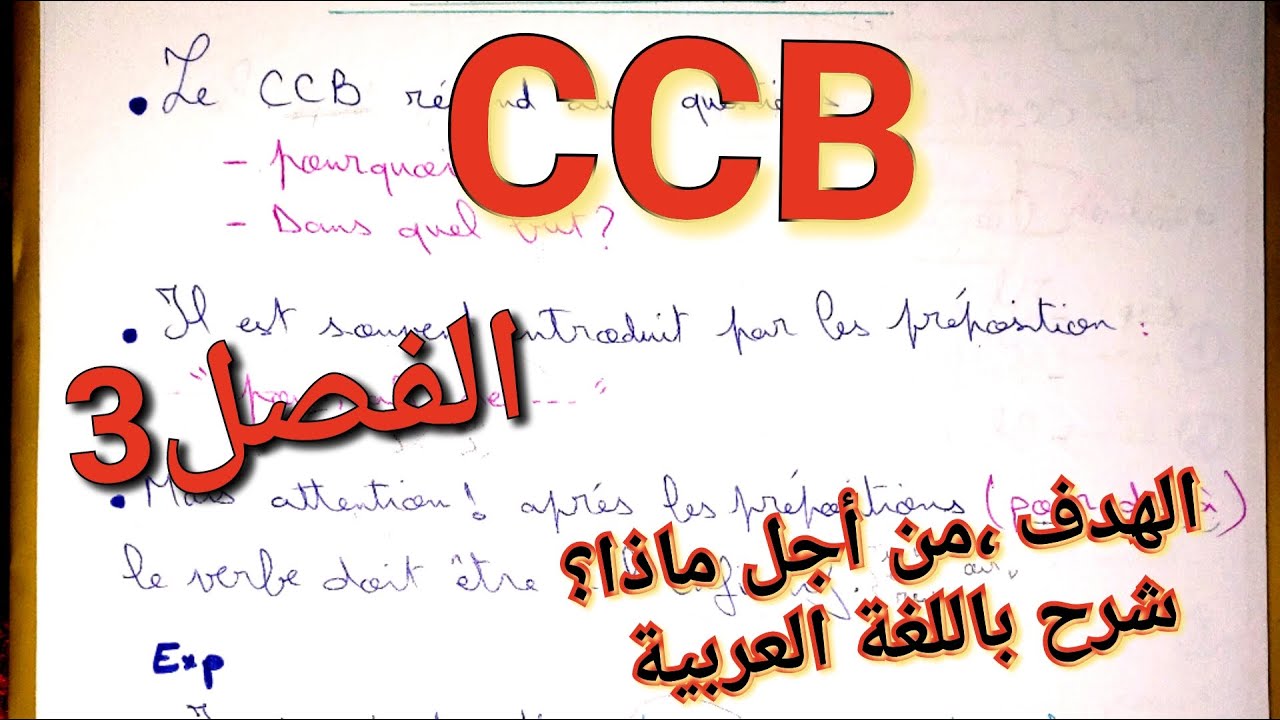 CCB
• Le CCB répond aux questions
- pourquoi
- Dans quel but?
• Il est souvent introduit par les préposition :
الفصل3
• Mais attention! aprés les prépositions (pour, de, à)
le verbe doit être
الهدف ،من أجل ماذا؟
شرح باللغة العربية
Exp